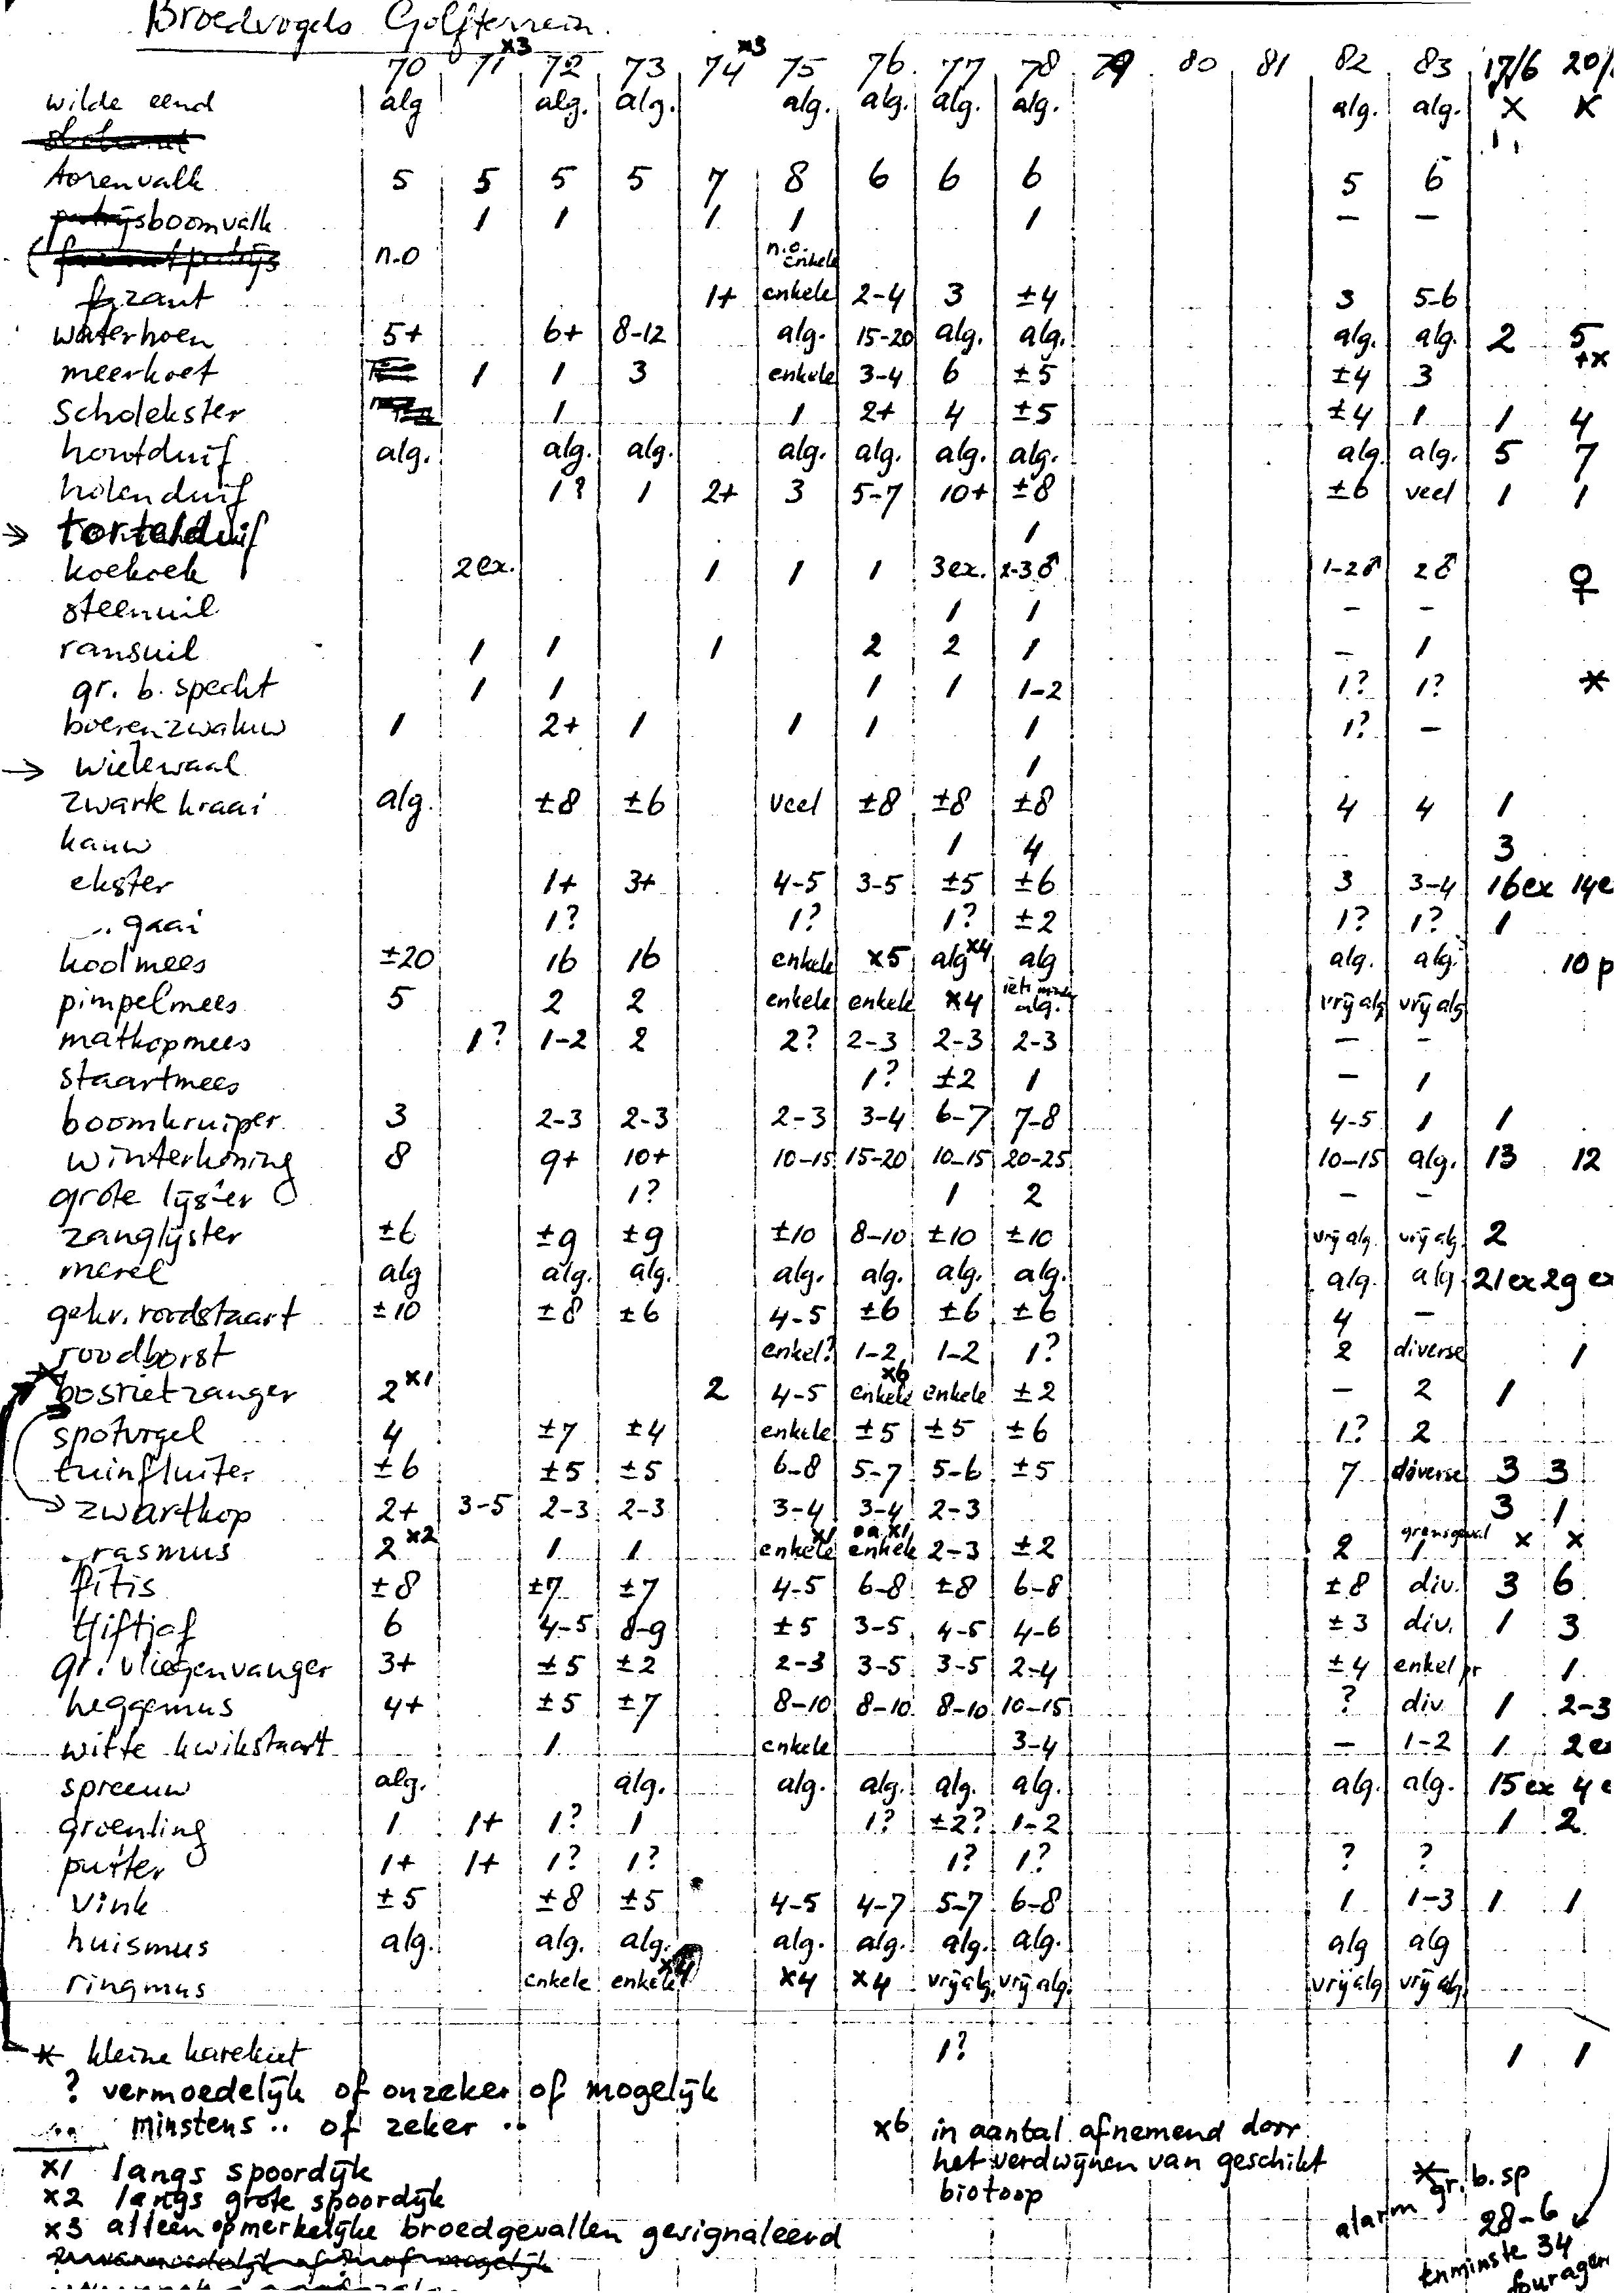 Broedvogels Golfterrein
70 71 x3 72 73 74 x3 75 76 77 78 79 80 81 82 83 17/6 20/
wilde eend alg alg. alg. alg. alg. alg. alg. alg. alg. x x
torenvalk 5 5 5 5 7 8 6 6 6 5 6
boomvalk 1 1 1 1 1 – –
n.o n.o. enkele
fazant 1+ enkele 2-4 3 ±4 3 5-6
waterhoen 5+ 6+ 8-12 alg. 15-20 alg. alg. alg. alg. 2 5 +x
meerkoet 1 1 3 enkele 3-4 6 ±5 ±4 3
Scholekster 1 1 2+ 4 ±5 ±4 1 1 4
houtduif alg. alg. alg. alg. alg. alg. alg. alg. alg. 5 7
holenduif 1? 1 2+ 3 5-7 10+ ±8 ±6 veel 1 1
→ tortelduif 1
koekoek 2ex. 1 1 1 3ex. 2-3♂ 1-2♂ 2♂ ♀
steenuil 1 1 – –
ransuil 1 1 1 2 2 1 – 1
gr. b. specht 1 1 1 1 1-2 1? 1? *
boerenzwaluw 1 2+ 1 1 1 1 1? –
→ wielewaal 1
zwarte kraai alg. ±8 ±6 veel ±8 ±8 ±8 4 4 1
kauw 1 4 3
ekster 1+ 3+ 4-5 3-5 ±5 ±6 3 3-4 16ex 14e
gaai 1? 1? 1? ±2 1? 1? 1
koolmees ±20 16 16 enkele x5 alg x4 alg alg. alg. 10 p
pimpelmees 5 2 2 enkele enkele x4 alg. vrij alg vrij alg
matkopmees 1? 1-2 2 2? 2-3 2-3 2-3 – –
staartmees 1? ±2 1 – 1
boomkruiper 3 2-3 2-3 2-3 3-4 6-7 7-8 4-5 1 1
winterkoning 8 9+ 10+ 10-15 15-20 10-15 20-25 10-15 alg. 13 12
grote lijster 1? 1 2 – –
zanglijster ±6 ±9 ±9 ±10 8-10 ±10 ±10 vrij alg. vrij alg. 2
merel alg alg. alg. alg. alg. alg. alg. alg. alg. 21ex 29 ex
gekr. roodstaart ±10 ±8 ±6 4-5 ±6 ±6 ±6 4 –
roodborst enkel? 1-2 1-2 1? 2 diverse 1
* bosrietzanger 2 x1 2 4-5 enkele x6 enkele ±2 – 2 1
spotvogel 4 ±7 ±4 enkele ±5 ±5 ±6 1? 2
tuinfluiter ±6 ±5 ±5 6-8 5-7 5-6 ±5 7 diverse 3 3
→ zwartkop 2+ 3-5 2-3 2-3 3-4 3-4 2-3 3 1
grasmus 2 x2 1 1 enkele x1 enkele x1 2-3 ±2 2 grensgeval 1 x x
fitis ±8 ±7 ±7 4-5 6-8 ±8 6-8 ±8 div. 3 6
tjiftjaf 6 4-5 8-9 ±5 3-5 4-5 4-6 ±3 div. 1 3
gr. vliegenvanger 3+ ±5 ±2 2-3 3-5 3-5 2-4 ±4 enkel pr 1
heggemus 4+ ±5 ±7 8-10 8-10 8-10 10-15 ? div. 1 2-3
witte kwikstaart 1 enkele 3-4 – 1-2 1 2ex
spreeuw alg. alg. alg. alg. alg. alg. alg. alg. 15ex 4e
groenling 1 1+ 1? 1 1? ±2? 1-2 1 2
putter 1+ 1+ 1? 1? 1? 1? ? ?
vink ±5 ±8 ±5 4-5 4-7 5-7 6-8 1 1-3 1 1
huismus alg. alg. alg. alg. alg. alg. alg. alg alg
ringmus enkele enkele x4 x4 x4 vrij alg. vrij alg. vrij alg vrij alg.
* kleine karekiet 1? 1 1
? vermoedelijk of onzeker of mogelijk
minstens .. of zeker ..
x1 langs spoordijk
x2 langs grote spoordijk
x3 alleen opmerkelijke broedgevallen gesignaleerd
x6 in aantal afnemend door
het verdwijnen van geschikt
biotoop
* gr. b. sp
alarm
28-6
tenminste 34